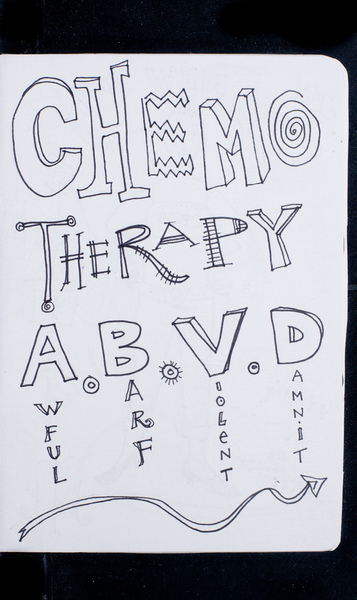 CHEMO
THERAPY
A.B.V.D
AWFUL
BARF
VIOLENT
DAMNIT